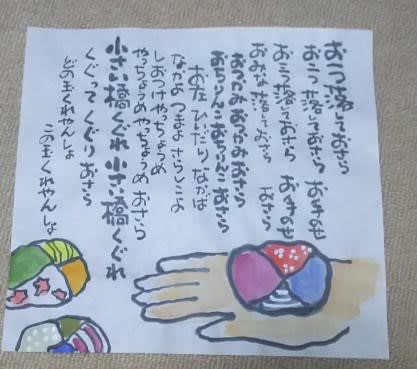 お一つ落しておさら
お二つ落しておさら お手のせ
お三つ落しておさら お手のせ
おみな落しておさら おさら
おつかみおつかみおさら
おちりんこおちりんこ おさら
お左 ひだり なかば
なかよ つまよ さらしこよ
しおつけやっちょうめ
やっちょうめやっちょうめ おさら
小さい橋くぐれ 小さい橋くぐれ
くぐって くぐり おさら
どの玉くれやんしょ
この玉くれやんしょ